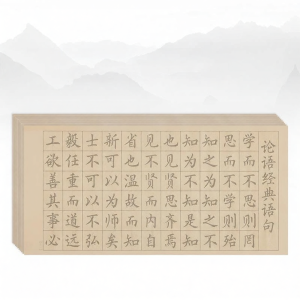 论语经典语句
学而不思则罔
思而不学则殆
知之为知之不
知为不知是知
也见贤思齐焉
见不贤而内自
省也温故而知
新可以为师矣
士不可以不弘
毅任重而道远
工欲善其事必